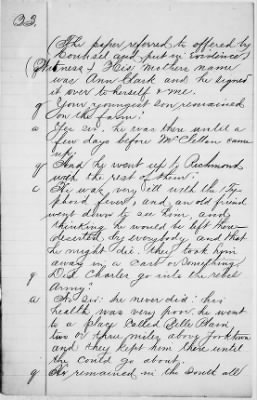 33.
(The paper referred to offered by
Counsel and put in Evidence)
(Witness) His Mothers name
was Ann Clark and he signed
it over to herself & me.
q Your youngest son remained
on the farm?
a Yes sir, he was there until a
few days before McClellan came
up.
q And he went up by Richmond
with the rest of them?
a He was very ill with the Ty-
phoid fever, and, an old friend
went down to see him, and
thinking he would be left there
deserted by everybody and that
he might die. They took him
away in a cart or something
q Did Charles go into the rebel
Army?
a No sir: he never did: his
health was very poor. he went
to a place called Bell Plain
two or three miles above Yorktown
and they kept him there until
he could go about.
q He remained in the South all